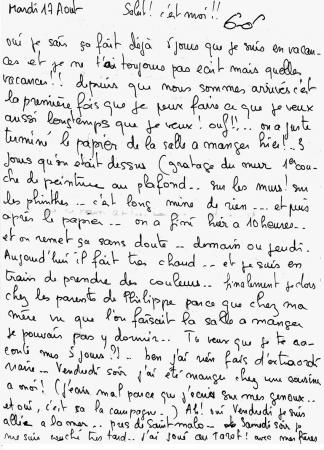 Mardi 17 Aout Salut! c'est moi!!
oui je sais ça fait déjà 5 jours que je suis en vacan-
ces et je ne t'ai toujours pas écrit mais quelles
vacances!! depuis que nous sommes arrivés c'est
la première fois que je peux faire ce que je veux
aussi longtemps que je veux! ouf!!... on a juste
terminé le papier de la salle a manger hier!.. 3
jours qu'on était dessus (gratage du mur 1er cou-
che de peinture au plafond.. sur les murs! sur
les plinthes.. c'est long mine de rien... et puis
après le papier.. on a fini hier a 10 heures..
et on remet ça sans doute.. demain ou jeudi.
Aujourd'hui il fait très chaud.. et je suis en
train de prendre des couleurs.. finalement je dors
chez les parents de Philippe parce que chez ma
mère vu que l'on faisait la salle a manger
je pouvais pas y dormir.. Tu veux que je te ra-
conte mes 5 jours?!.. ben j'ai rien fais d'extraordi
naire.. Vendredi soir j'ai été manger chez une cousine
a moi! (j'écris mal parce que j'écris sur mes genoux..
et oui, c'est ça la campagne..) Ah! oui Vendredi je suis
allée a la mer.. près de Saint-malo.. Samedi soir je
me suis couché très tard.. j'ai joué au tarot! avec mes frères